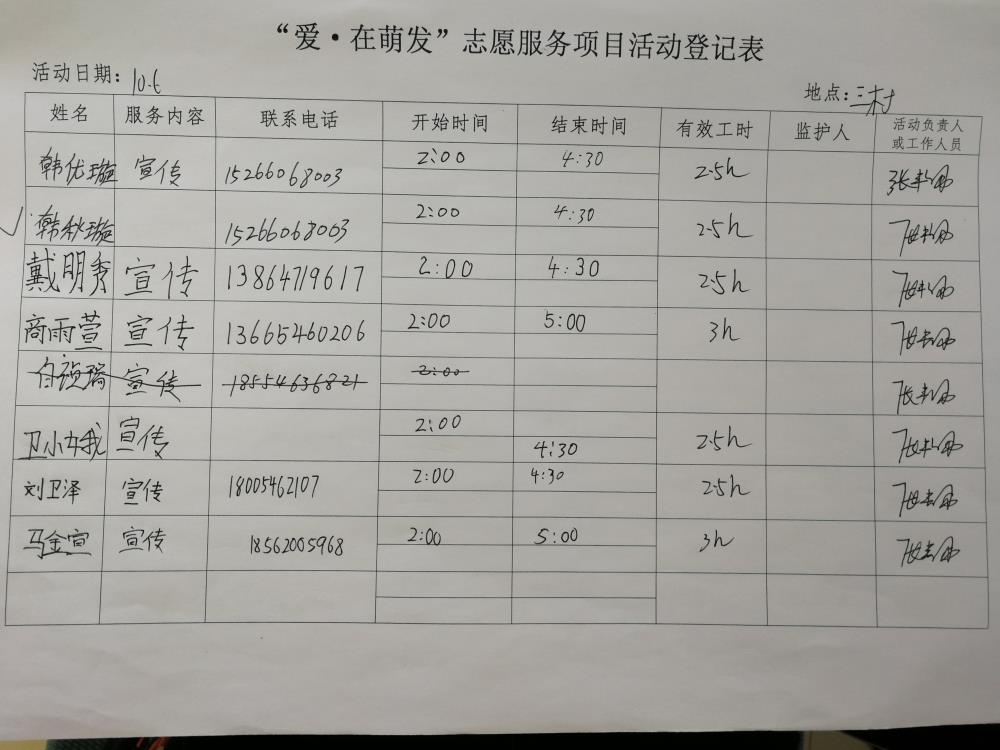 “爱·在萌发”志愿服务项目活动登记表
活动日期：10.6 地点：三村
姓名 服务内容 联系电话 开始时间 结束时间 有效工时 监护人 活动负责人或工作人员
韩优璇 宣传 15266068003 2:00 4:30 2.5h
韩秋璇 15266068003 2:00 4:30 2.5h
戴明秀 宣传 13864719617 2:00 4:30 2.5h
商雨萱 宣传 13665460206 2:00 5:00 3h
白祯瑞 宣传 18554636821 2:00
卫小娥 宣传 2:00 4:30 2.5h
刘卫泽 宣传 18005462107 2:00 4:30 2.5h
马金宣 宣传 18562005968 2:00 5:00 3h